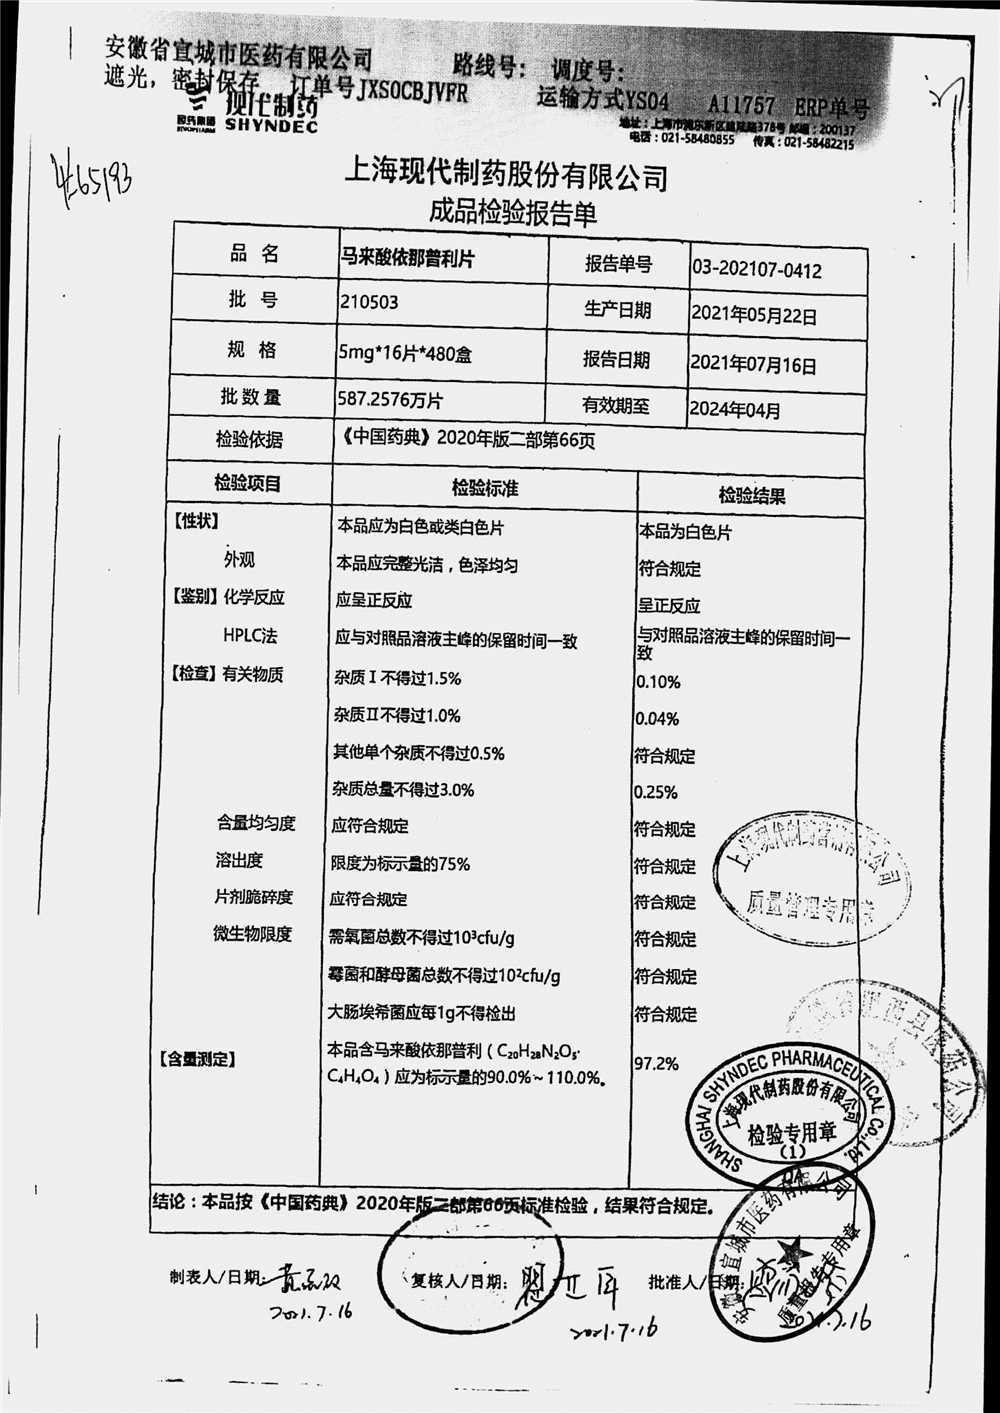 安徽省宣城市医药有限公司 路线号: 调度号:
遮光，密封保存 订单号JXSOCBJVFR 运输方式YS04 A11757 ERP单号
国药集团 现代制药
SINOPHARM SHYNDEC
地址：上海市浦东新区建陆路378号 邮编：200137
电话：021-58480855 传真：021-58482215
上海现代制药股份有限公司
成品检验报告单
品 名 马来酸依那普利片 报告单号 03-202107-0412
批 号 210503 生产日期 2021年05月22日
规 格 5mg*16片*480盒 报告日期 2021年07月16日
批 数 量 587.2576万片 有效期至 2024年04月
检验依据 《中国药典》2020年版二部第66页
检验项目 检验标准 检验结果
【性状】 本品应为白色或类白色片 本品为白色片
外观 本品应完整光洁，色泽均匀 符合规定
【鉴别】化学反应 应呈正反应 呈正反应
HPLC法 应与对照品溶液主峰的保留时间一致 与对照品溶液主峰的保留时间一
致
【检查】有关物质 杂质Ⅰ不得过1.5% 0.10%
杂质Ⅱ不得过1.0% 0.04%
其他单个杂质不得过0.5% 符合规定
杂质总量不得过3.0% 0.25%
含量均匀度 应符合规定 符合规定
溶出度 限度为标示量的75% 符合规定
片剂脆碎度 应符合规定 符合规定
微生物限度 需氧菌总数不得过10³cfu/g 符合规定
霉菌和酵母菌总数不得过10²cfu/g 符合规定
大肠埃希菌应每1g不得检出 符合规定
【含量测定】 本品含马来酸依那普利（C₂₀H₂₈N₂O₅· 97.2%
C₄H₄O₄）应为标示量的90.0%～110.0%。
上海现代制药营销有限公司
质量管理专用章
SHANGHAI SHYNDEC PHARMACEUTICAL Co.,Ltd.
上海现代制药股份有限公司
检验专用章
(1)
QA
结论：本品按《中国药典》2020年版二部第66页标准检验，结果符合规定。
安徽省宣城市医药有限公司
质量报告专用章
(1)
制表人/日期: 复核人/日期: 批准人/日期:
2021.7.16 2021.7.16 2021.7.16